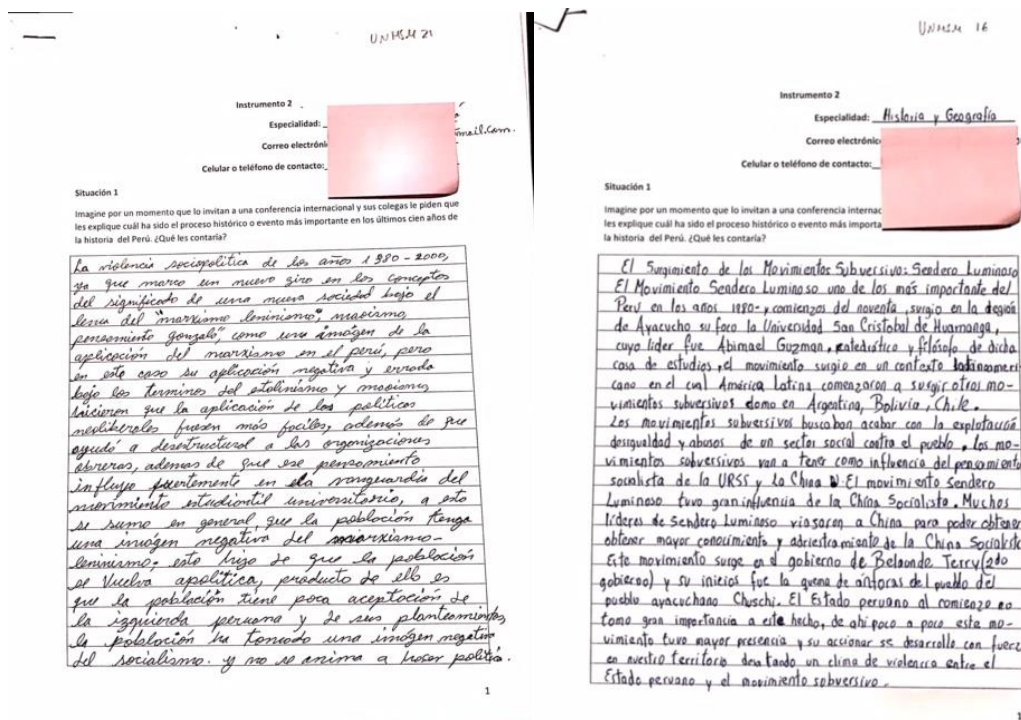 UNMSM 21
Instrumento 2
Especialidad:
Correo electróni
mail.com.
Celular o teléfono de contacto:
Situación 1
Imagine por un momento que lo invitan a una conferencia internacional y sus colegas le piden que
les explique cuál ha sido el proceso histórico o evento más importante en los últimos cien años de
la historia del Perú. ¿Qué les contaría?
La violencia sociopolítica de los años 1980-2000,
ya que marco un nuevo giro en los conceptos
del significado de una nueva sociedad bajo el
lema del "marxismo leninismo", maoismo,
pensamiento gonzalo", como una imágen de la
aplicación del marxismo en el perú, pero
en este caso su aplicación negativa y errada
bajo los terminos del stalinismo y maoismo
hicieron que la aplicación de las políticas
neoliberales fuesen más faciles, además de que
ayudó a desestructural a las organizaciones
obreras, ademas de que ese pensamiento
influyo fuertemente en la vanguardia del
movimiento estudiantil universitario, a esto
se sumo en general, que la población tenga
una imágen negativa del marxismo-
leninismo; esto hizo de que la población
se vuelva apolítica, producto de ello es
que la población tiene poca aceptación de
la izquierda peruana y de sus planteamientos
la población ha tomado una imágen negativa
del socialismo. y no se anima a hacer politia.
1
UNMSM 16
Instrumento 2
Especialidad: Historia y Geografía
Correo electrónic
Celular o teléfono de contacto:
Situación 1
Imagine por un momento que lo invitan a una conferencia internac
les explique cuál ha sido el proceso histórico o evento más importa
la historia del Perú. ¿Qué les contaría?
El Surgimiento de los Movimientos Subversivo: Sendero Luminoso
El Movimiento Sendero Luminoso uno de los más importante del
Perú en los años 1980- y comienzos del noventa, surgio en la región
de Ayacucho su foco la Universidad San Cristobal de Huamanga,
cuyo lider fue Abimael Guzman, catedrático y filósofo de dicha
casa de estudios, el movimiento surgio en un contexto latinoameri
cano en el cual América Latina comenzaron a surgir otros mo-
vimientos subversivos como en Argentina, Bolivia, Chile.
Los movimientos subversivos buscaban acabar con la explotación
desigualdad y abusos de un sector social contra el pueblo. Los mo-
vimientos subversivos van a tener como influencia del pensamiento
socialista de la URSS y La China El movimiento Sendero
Luminoso tuvo gran influencia de la China Socialista. Muchos
líderes de Sendero Luminoso viajaron a China para poder obtener
obtener mayor conocimiento y adriestramiento de la China Socialista
Este movimiento surge en el gobierno de Belaunde Terry (2do
gobierno) y su inicios fue la quema de ánforas del pueblo del
pueblo ayacuchano Chuschi. El Estado peruano al comienzo no
tomo gran importancia a este hecho, de ahí poco a poco este mo-
vimiento tuvo mayor presencia y su accionar se desarrollo con fuerz
en nuestro territorio desatando un clima de violencia entre el
Estado peruano y el movimiento subversivo.
1